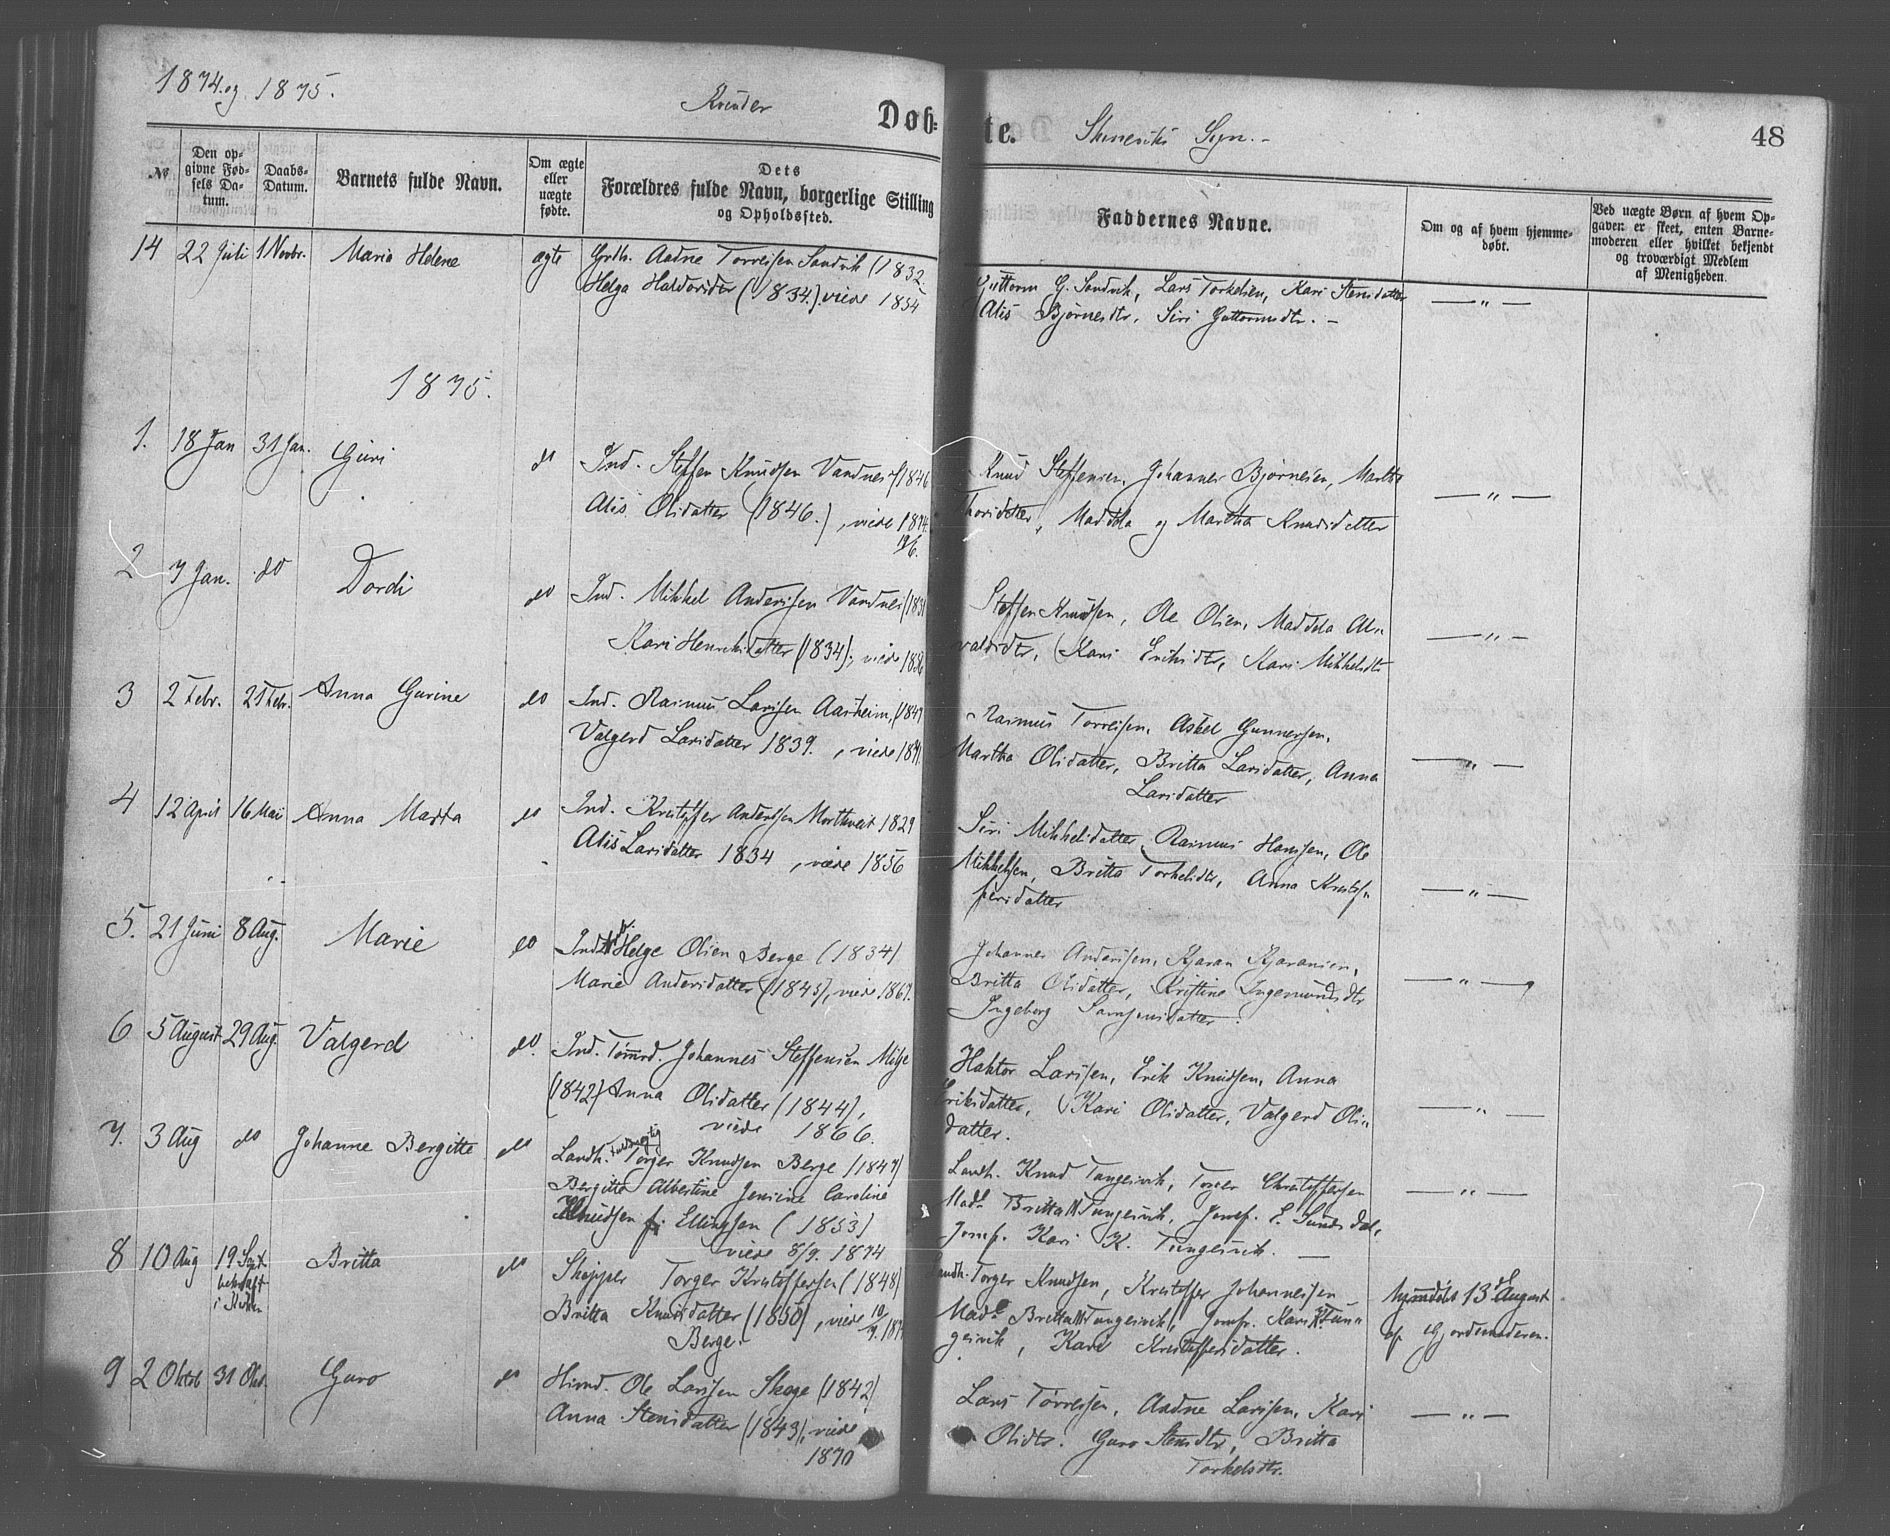 1874 og 1875.
Kvinder
Døb=
te.
Skonevik Sogn.
48
№
Den op-
givne Fød-
sels Da-
tum.
Daabs-
Datum.
Barnets fulde Navn.
Om ægte
eller
uægte
fødte.
Dets
Forældres fulde Navn, borgerlige Stilling
og Opholdssted.
Faddernes Navne.
Om og af hvem hjemme-
døbt.
Ved uægte Børn af hvem Op-
gaven er skeet, enten Barne-
moderen eller hvilket bekjendt
og troværdigt Medlem
af Menigheden.
14 22 Juli 1 Novbr. Marie Helene ægte Grdb. Aadne Torreisen Sandvik (1832.
Helga Haldorsdtr (1834.) viede 1854
Guttorm G. Sandvik, Lars Torkelsen, Kari Stensdatter — " —
Alis Bjørnesdtr, Siri Guttormsdtr. —
1875.
1. 18 Jan 31 Jan. Guri do Ind. Steffen Knudsen Vandnes (1846
Alis Olsdatter (1846.), viede 1874.
19/6.
Knud Steffensen, Johannes Bjørnesen, Martha — " —
Thorsdatter, Maddela og Martha Knudsdatter
2 7 Jan. do Dordi do Ind. Mikkel Andersen Vandnes (183
Kari Henriksdatter (1834); viede 1856
Steffen Knudsen, Ole Olsen, Maddela Al" — " —
valdsdtr, Kari Eriksdtr, Kari Mikkelsdtr
3 2 Febr. 21 Febr. Anna Gurine do Ind. Rasmus Larsen Aarheim, (1847
Valgerd Larsdatter 1839. , viede 1871.
Rasmus Torreisen, Askel Gunnarsen,
Martha Olsdatter, Britta Larsdatter, Anna — " —
Larsdatter
4 12 April 16 Mai Anna Marta do Ind. Kristoffer Anderssen Mortkveit 1829
Alis Larsdatter 1834 , viede 1856
Siri Mikkelsdatter, Rasmus Hansen, Ole
Mikkelsen, Britta Torkelsdtr, Anna Kristof" — " —
fersdatter
5. 21 Juni 8 Aug. Marie do Ind. Helge Olsen Berge (1834)
Marie Andersdatter (1843), viede 1867.
Johannes Andersen, Kjaran Kjaransen,
Britta Olsdatter, Kristine Ingemundsdtr — " —
Ingeborg Samsonsdatter.
6 5 August 29 Aug. Valgerd do. Ind. Tømrd. Johannes Steffensen Milje
(1842) Anna Olsdatter (1844),
viede 1866.
Haktor Larsen, Erik Knudsen, Anna
Eriksdatter, Kari Olsdatter, Valgerd Ols" — " —
datter.
7. 3 Aug do Johanne Bergitte do Landh. Torger Knudsen Berge (1847)
Bergitte Albertine Jensine Caroline
Knudsen f. Ellingsen (1853)
viede 8/9. 1874
Landh. Knud Tungesvik, Torger Christoffersen
Mad. Britta Tungesvik, Jomf. E. Sundsdal, — " —
Jomf. Kari K. Tungesvik. —
8 10 Aug 19 Sept. Britta do Skipper Torger Kristoffersen (1848)
bekræft
i Kirken
Britta Knudsdatter (1850), viede 10/9. 187
Berge.
Landh. Torger Knudsen, Kristoffer Johannessen
Mad. Britta Tungesvik, Jomf. Kari K. Tun"
gesvik, Kari Kristoffersdatter.
hjemdøbt 13 August
af Gjordemoderen.
9 2 Oktob 31 Okt. Guro do Huusmd. Ole Larsen Skoge (1842)
Anna Stensdatter (1843), viede
1870
Lars Tørresen, Aadne Larsen, Kari — " —
Olsdtr. Guro Stensdtr, Britta
Torkelsdtr.